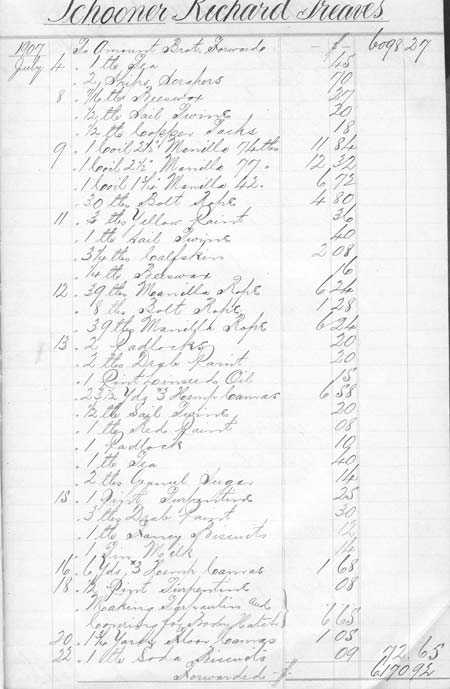 Schooner Richard Greaves
1907 To Amount Brot. Forward $ 6098 27
July 4 . 1 lb Tea 45
. 2 Ships Scrapers 70
8 . lb Beeswax 27
. ½ lb Sail Twine 20
. ½ lb Copper Tacks 18
9 . 1 Coil 2½" Manilla 74 lbs 11 84
. 1 Coil 2½" Manilla 77 " 12 32
. 1 Coil 1¾ Manilla 42 . 6 72
. 30 lbs Bolt Rope 4 80
11 . 3 lbs Yellow Paint 36
. 1 lb Sail Twine 40
. 3¼ lbs Calfskin 2 08
. ¼ lb Beeswax 16
12 . 39 lbs Manilla Rope 6 24
. 8 lbs Bolt Rope 1 28
. 39 lbs Manilla Rope 6 24
13 . 2 Padlocks 20
. 2 lbs Drab Paint 20
. 1 Pint Linseed Oil 15
. 23½ Yds #3 Hemp Canvas 6 58
. ½ lb Sail Twine 20
. 1 lb Red Paint 08
. 1 Padlock 19
. 1 lb Tea 40
. 2 lbs Granul Sugar 14
15 . 1 Pint Turpentine 25
. 3 lbs Drab Paint 30
. 1 lb Fancy Biscuits 12
. 1 Tin Milk 14
16 . 6 Yds #3 Hemp Canvas 1 68
18 . ½ Pint Turpentine 08
. Making Tarpaulin and
Covering for Booby Hatch 6 65
20 . 1¾ Yards Floor Canvas 1 05
22 . 1 lb Soda Biscuits 09 72.65
Forwarded $ 6170 92